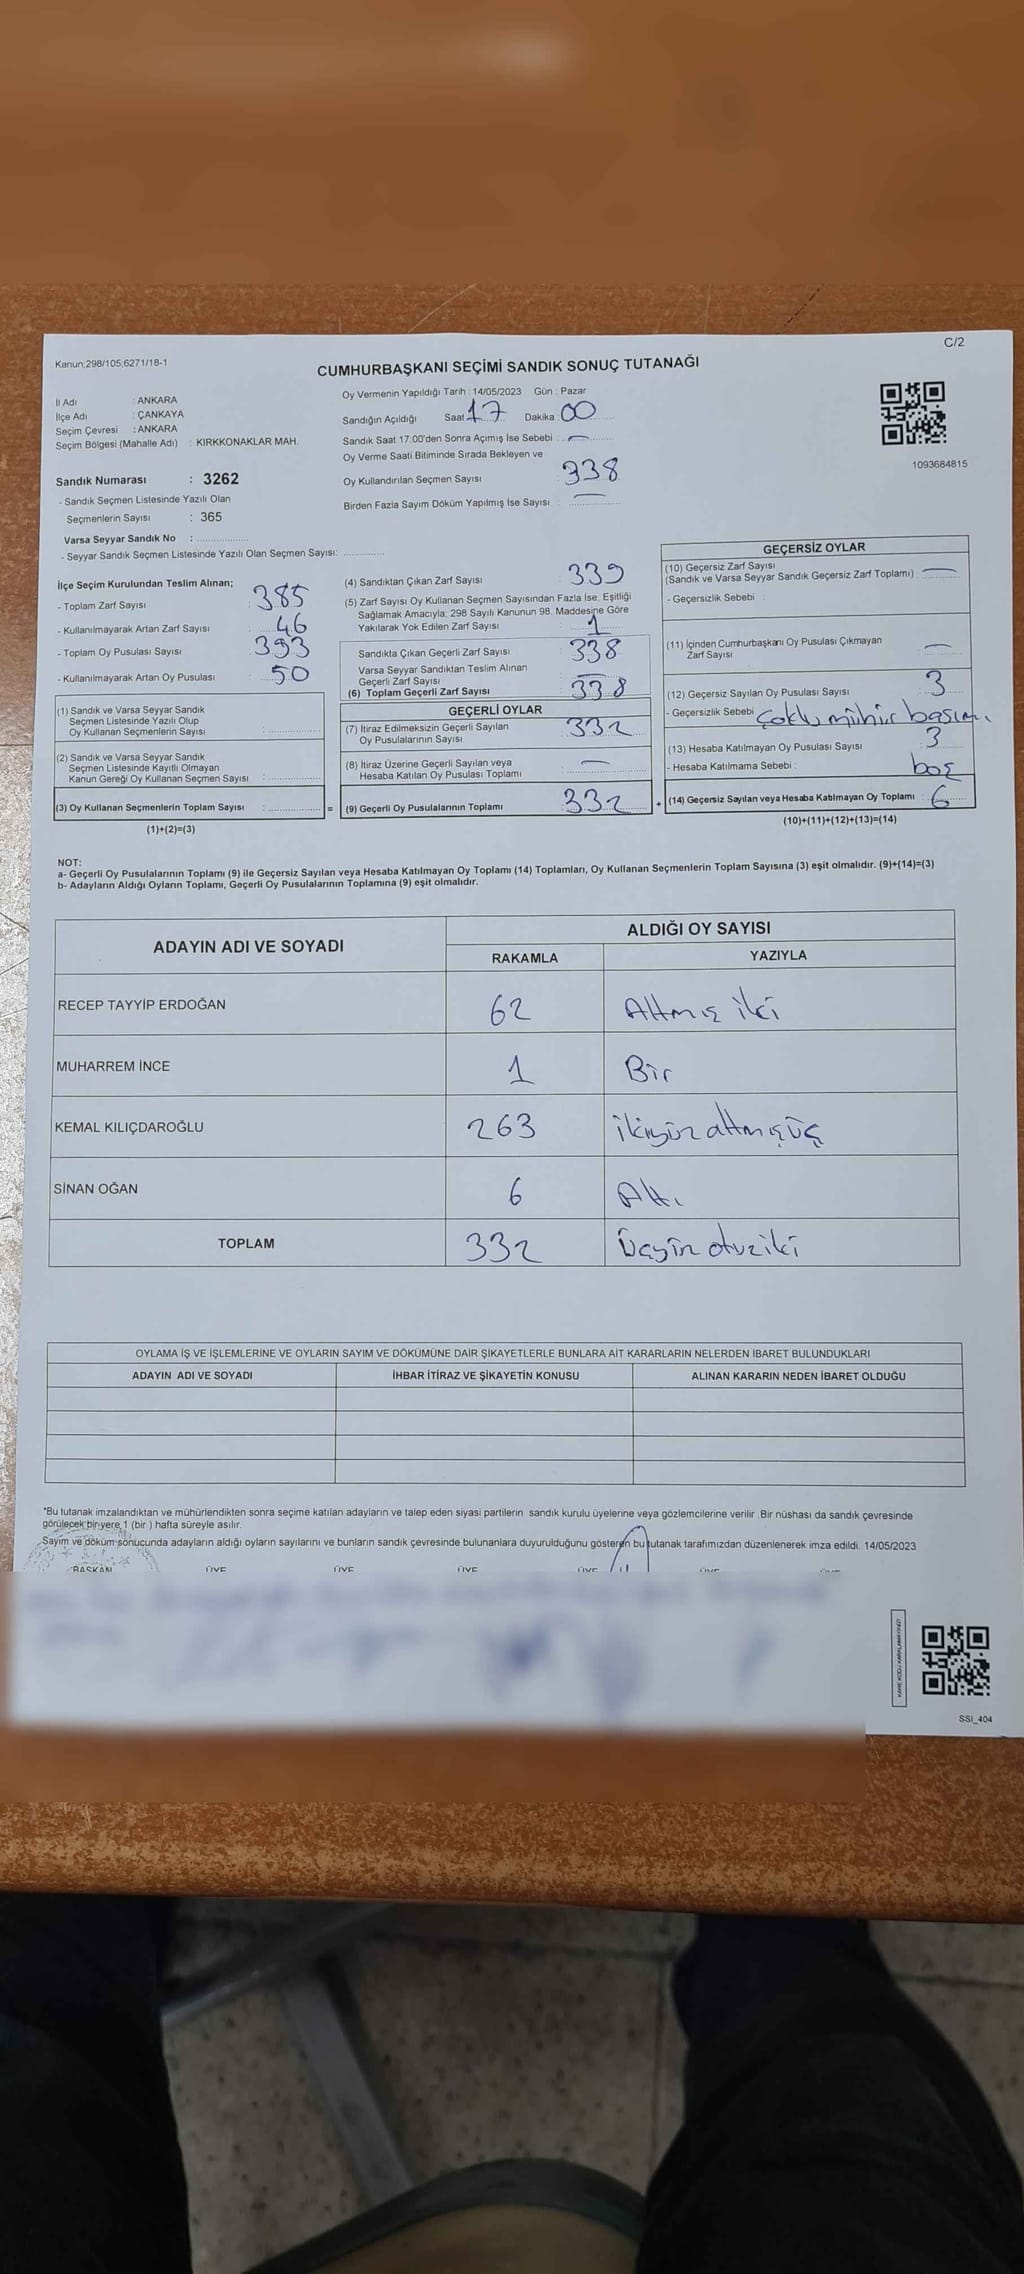 C/2
Kanun;298/105;6271/18-1
CUMHURBAŞKANI SEÇİMİ SANDIK SONUÇ TUTANAĞI
İl Adı : ANKARA
İlçe Adı : ÇANKAYA
Seçim Çevresi : ANKARA
Seçim Bölgesi (Mahalle Adı) : KIRKKONAKLAR MAH.
Sandık Numarası : 3262
- Sandık Seçmen Listesinde Yazılı Olan
Seçmenlerin Sayısı : 365
Varsa Seyyar Sandık No :
- Seyyar Sandık Seçmen Listesinde Yazılı Olan Seçmen Sayısı:
Oy Vermenin Yapıldığı Tarih : 14/05/2023 Gün : Pazar
Sandığın Açıldığı Saat 17 Dakika : 00
Sandık Saat 17.00'den Sonra Açımış İse Sebebi : —
Oy Verme Saati Bitiminde Sırada Bekleyen ve
Oy Kullandırılan Seçmen Sayısı : 338
Birden Fazla Sayım Döküm Yapılmış İse Sayısı : —
1093684815
İlçe Seçim Kurulundan Teslim Alınan;
- Toplam Zarf Sayısı : 385
- Kullanılmayarak Artan Zarf Sayısı : 46
- Toplam Oy Pusulası Sayısı : 393
- Kullanılmayarak Artan Oy Pusulası : 50
(1) Sandık ve Varsa Seyyar Sandık
Seçmen Listesinde Yazılı Olup
Oy Kullanan Seçmenlerin Sayısı :
(2) Sandık ve Varsa Seyyar Sandık
Seçmen Listesinde Kayıtlı Olmayan
Kanun Gereği Oy Kullanan Seçmen Sayısı :
(3) Oy Kullanan Seçmenlerin Toplam Sayısı : =
(1)+(2)=(3)
(4) Sandıktan Çıkan Zarf Sayısı : 339
(5) Zarf Sayısı Oy Kullanan Seçmen Sayısından Fazla İse, Eşitliği
Sağlamak Amacıyla; 298 Sayılı Kanunun 98. Maddesine Göre
Yakılarak Yok Edilen Zarf Sayısı : 1
Sandıkta Çıkan Geçerli Zarf Sayısı : 338
Varsa Seyyar Sandıktan Teslim Alınan
Geçerli Zarf Sayısı : —
(6) Toplam Geçerli Zarf Sayısı : 338
GEÇERLİ OYLAR
(7) İtiraz Edilmeksizin Geçerli Sayılan
Oy Pusulalarının Sayısı : 332
(8) İtiraz Üzerine Geçerli Sayılan veya
Hesaba Katılan Oy Pusulası Toplamı : —
(9) Geçerli Oy Pusulalarının Toplamı : 332 +
GEÇERSİZ OYLAR
(10) Geçersiz Zarf Sayısı
(Sandık ve Varsa Seyyar Sandık Geçersiz Zarf Toplamı) : —
- Geçersizlik Sebebi :
(11) İçinden Cumhurbaşkanı Oy Pusulası Çıkmayan
Zarf Sayısı : —
(12) Geçersiz Sayılan Oy Pusulası Sayısı : 3
- Geçersizlik Sebebi : çoklu mühür basımı
(13) Hesaba Katılmayan Oy Pusulası Sayısı : 3
- Hesaba Katılmama Sebebi : boş
(14) Geçersiz Sayılan veya Hesaba Katılmayan Oy Toplamı : 6
(10)+(11)+(12)+(13)=(14)
NOT:
a- Geçerli Oy Pusulalarının Toplamı (9) ile Geçersiz Sayılan veya Hesaba Katılmayan Oy Toplamı (14) Toplamları, Oy Kullanan Seçmenlerin Toplam Sayısına (3) eşit olmalıdır. (9)+(14)=(3)
b- Adayların Aldığı Oyların Toplamı, Geçerli Oy Pusulalarının Toplamına (9) eşit olmalıdır.
ADAYIN ADI VE SOYADI ALDIĞI OY SAYISI
RAKAMLA YAZIYLA
RECEP TAYYİP ERDOĞAN 62 Altmış iki
MUHARREM İNCE 1 Bir
KEMAL KILIÇDAROĞLU 263 ikiyüz altmış üç
SİNAN OĞAN 6 Altı
TOPLAM 332 Üçyüz otuz iki
OYLAMA İŞ VE İŞLEMLERİNE VE OYLARIN SAYIM VE DÖKÜMÜNE DAİR ŞİKAYETLERLE BUNLARA AİT KARARLARIN NELERDEN İBARET BULUNDUKLARI
ADAYIN ADI VE SOYADI İHBAR İTİRAZ VE ŞİKAYETİN KONUSU ALINAN KARARIN NEDEN İBARET OLDUĞU
*Bu tutanak imzalandıktan ve mühürlendikten sonra seçime katılan adayların ve talep eden siyasi partilerin sandık kurulu üyelerine veya gözlemcilerine verilir. Bir nüshası da sandık çevresinde
görülecek bir yere 1 (bir ) hafta süreyle asılır.
Sayım ve döküm sonucunda adayların aldığı oyların sayılarını ve bunların sandık çevresinde bulunanlara duyurulduğunu gösteren bu tutanak tarafımızdan düzenlenerek imza edildi. 14/05/2023
BAŞKAN ÜYE ÜYE ÜYE ÜYE ÜYE ÜYE
SSI_404